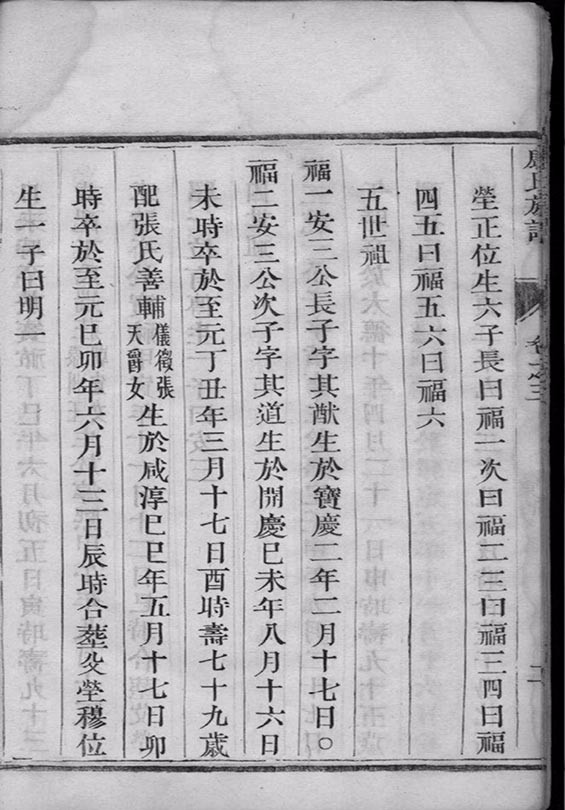 氏族譜
卷之三
塋正位生六子長曰福一次曰福二三曰福三四曰福
四五曰福五六曰福六
五世祖
福一安三公長子字其猷生於寶慶二年二月十七日○
福二安三公次子字其道生於開慶巳未年八月十六日
未時卒於至元丁丑年三月十七日酉時壽七十九歲
配張氏善輔儀徵張天爵女生於咸淳巳巳年五月十七日卯
時卒於至元巳卯年六月十三日辰時合葬父塋穆位
生一子曰明一